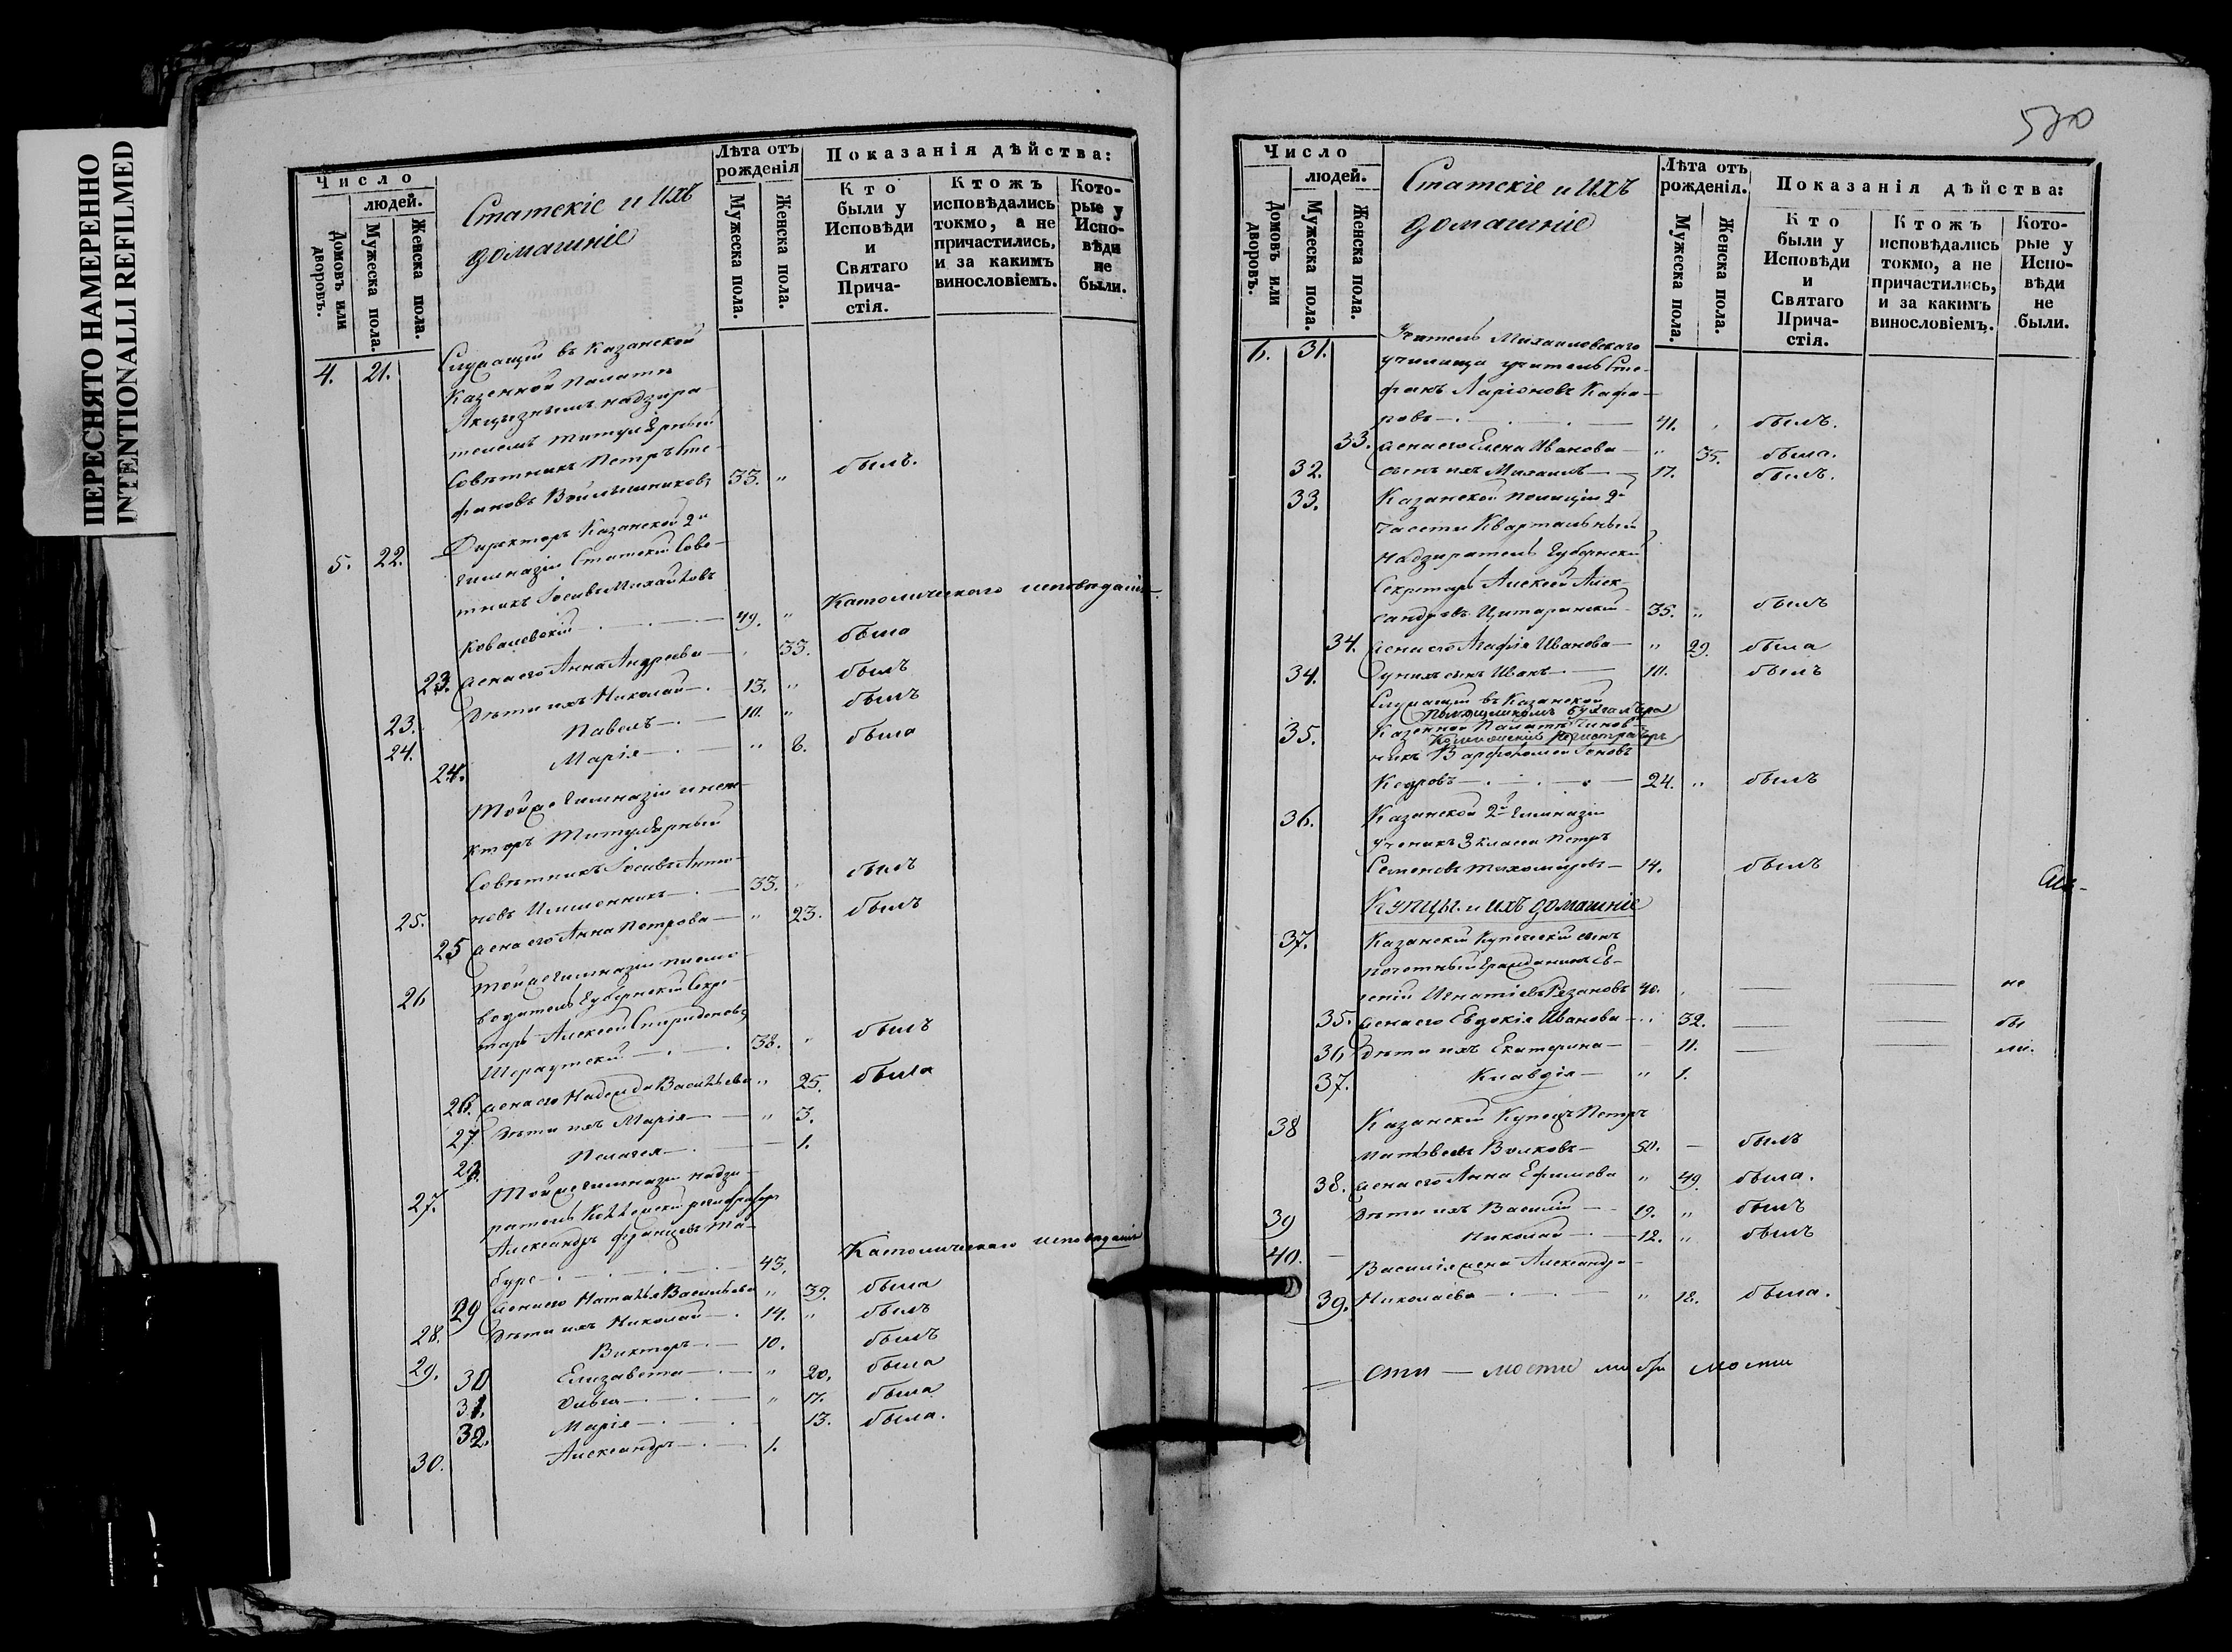 ПЕРЕСНЯТО НАМЕРЕННО
INTENTIONALLI REFILMED
Число
людей.
Домовъ или дворовъ.
Мужеска пола.
Женска пола.
Статскіе и ихъ
домашніе
Лѣта отъ
рожденія
Мужеска пола.
Женска пола.
Показанія дѣйства:
Кто
были у
Исповѣди
и
Святаго
Прича-
стія.
Ктожъ
исповѣдались
токмо, а не
причастились,
и за какимъ
винословіемъ.
Кото-
рые у
Испо-
вѣди
не
были.
4. 21. Служащій въ Казанской
Казенной Палатѣ
Акцизнымъ надзира-
телемъ Титулярный
Совѣтникъ Петръ Сте-
фановъ 33. " былъ.
5. 22. Директоръ Казанской 2й
гимназіи Статскій Совѣ-
тникъ Іосифъ Михайловъ
Ковалевскій 49. " Католическаго исповѣданія.
23. жена его Анна Андреева " 33. была
23. Дѣти ихъ Николай 13. " былъ
24. Павелъ 10. " былъ
24. Марія " 8. была
Тойже гимназіи инспе-
кторъ Титулярный
Совѣтникъ Іосифъ Анто-
25. новъ 33. былъ
25 жена его Анна Петрова " 23. былъ
26 Тойже гимназіи письмо-
водитель Губернскій Секре-
тарь Алексей Спиридоновъ
38. " былъ
26. жена его Надежда Васильева " 25. была
27. Дѣти ихъ Марія " 3.
28. Пелагея 1.
27. Тойже гимназіи надзи-
ратель Коллежскій регистраторъ
Александръ Францевъ Та-
буре 43. Католическаго исповѣданія
29 жена его Наталья Васильева " 39. была
28. Дѣти ихъ Николай 14. " былъ
29. Викторъ 10. былъ
30 Елизавета " 20. была
31. Ольга " 17. была
32. Марія 13. была.
30. Александръ 1.
580
Число
людей.
Домовъ или дворовъ.
Мужеска пола.
Женска пола.
Статскіе и ихъ
домашніе
Лѣта отъ
рожденія.
Мужеска пола.
Женска пола.
Показанія дѣйства:
Кто
были у
Исповѣди
и
Святаго
Прича-
стія.
Ктожъ
исповѣдались
токмо, а не
причастились,
и за какимъ
винословіемъ.
Кото-
рые у
Испо-
вѣди
не
были.
6. 31. Учитель Михаиловскаго
училища учитель Сте-
фанъ Ларіоновъ Кафа-
ровъ 41. былъ.
33. жена его Елена Иванова " 35. была.
32. сынъ ихъ Михаилъ 17. былъ.
33. Казанской полиціи 2й
части Квартальный
Надзиратель Губернскій
Секретарь Алексей Алек-
сандровъ 35. " былъ
34. жена его Агафія Иванова " 29. была
34. У нихъ сынъ Иванъ 10. былъ
Служащій въ Казанской
Помощникомъ бухгалтера
35. Казенной Палатѣ Чинов-
Коллежскій Регистраторъ
никъ Варфоломей
Кедровъ 24. " былъ
36. Казанской 2й Гимназіи
ученикъ 3 класса Петръ
Семеновъ Тихомировъ 14. былъ
Купцы и ихъ домашніе
37. Казанскій Купеческій сынъ
почетный гражданинъ Ев-
геній Игнатіевъ Рязановъ 40. не
35. жена его Евдокія Иванова " 32. бы
36. Дѣти ихъ Екатерина 11. ли.
37. Клавдія " 1.
38 Казанскій Купецъ Петръ
Матвеевъ Волковъ 50. былъ
38. жена его Анна Ефимова " 49. была.
39 Дѣти ихъ Василій 19. " былъ
40. Николай 12. " былъ
Василія жена Александра
39. Николаева " 18. была.